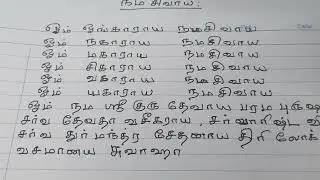 நமசிவாய:
ஓம் ஓங்காராய நமசிவாய
ஓம் நகாராய நமசிவாய
ஓம் மகாராய நமசிவாய
ஓம் சிகாராய நமசிவாய
ஓம் வகாராய நமசிவாய
ஓம் யகாராய நமசிவாய
ஓம் நம ஸ்ரீ குரு தேவாய பரம புருஷ
சர்வ தேவதா வசீகராய, சர்வாரிஷ்ட வி
சர்வ துர்மந்த்ர சேதனாய திரிலோக்
வசமானய சுவாஹா